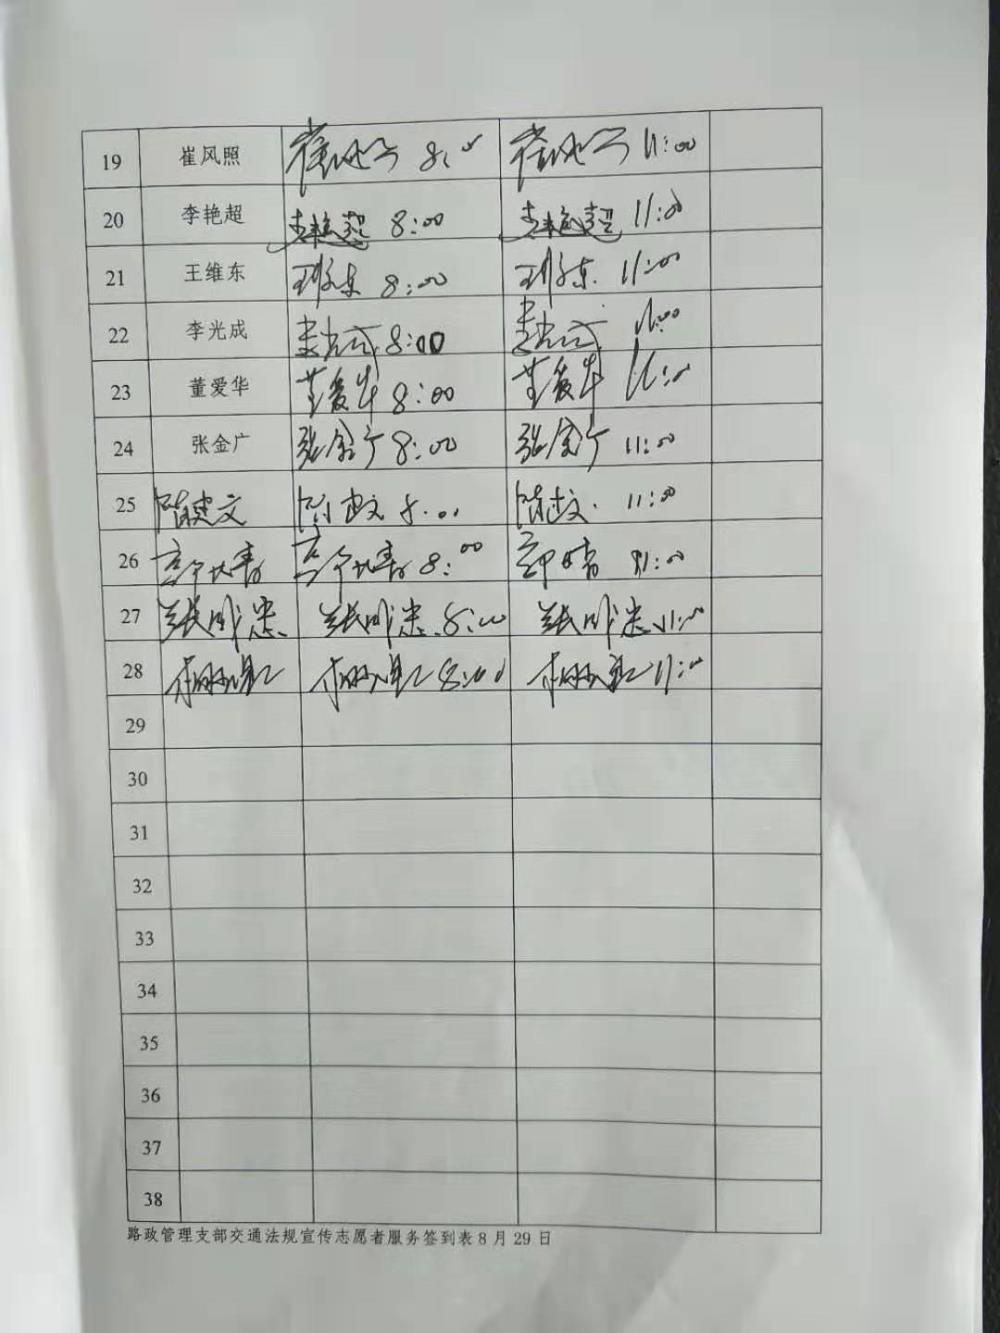 19 崔风照 崔风照 8:00 崔风照 11:00
20 李艳超 李艳超 8:00 李艳超 11:00
21 王维东 王维东 8:00 王维东 11:00
22 李光成 李光成 8:00 李光成 11:00
23 董爱华 董爱华 8:00 董爱华 11:00
24 张金广 张金广 8:00 张金广 11:00
25 陈建文 陈建文 8:00 陈建文 11:00
26 8:00 11:00
27 8:00 11:00
28 8:00 11:00
29
30
31
32
33
34
35
36
37
38
路政管理支部交通法规宣传志愿者服务签到表8月29日